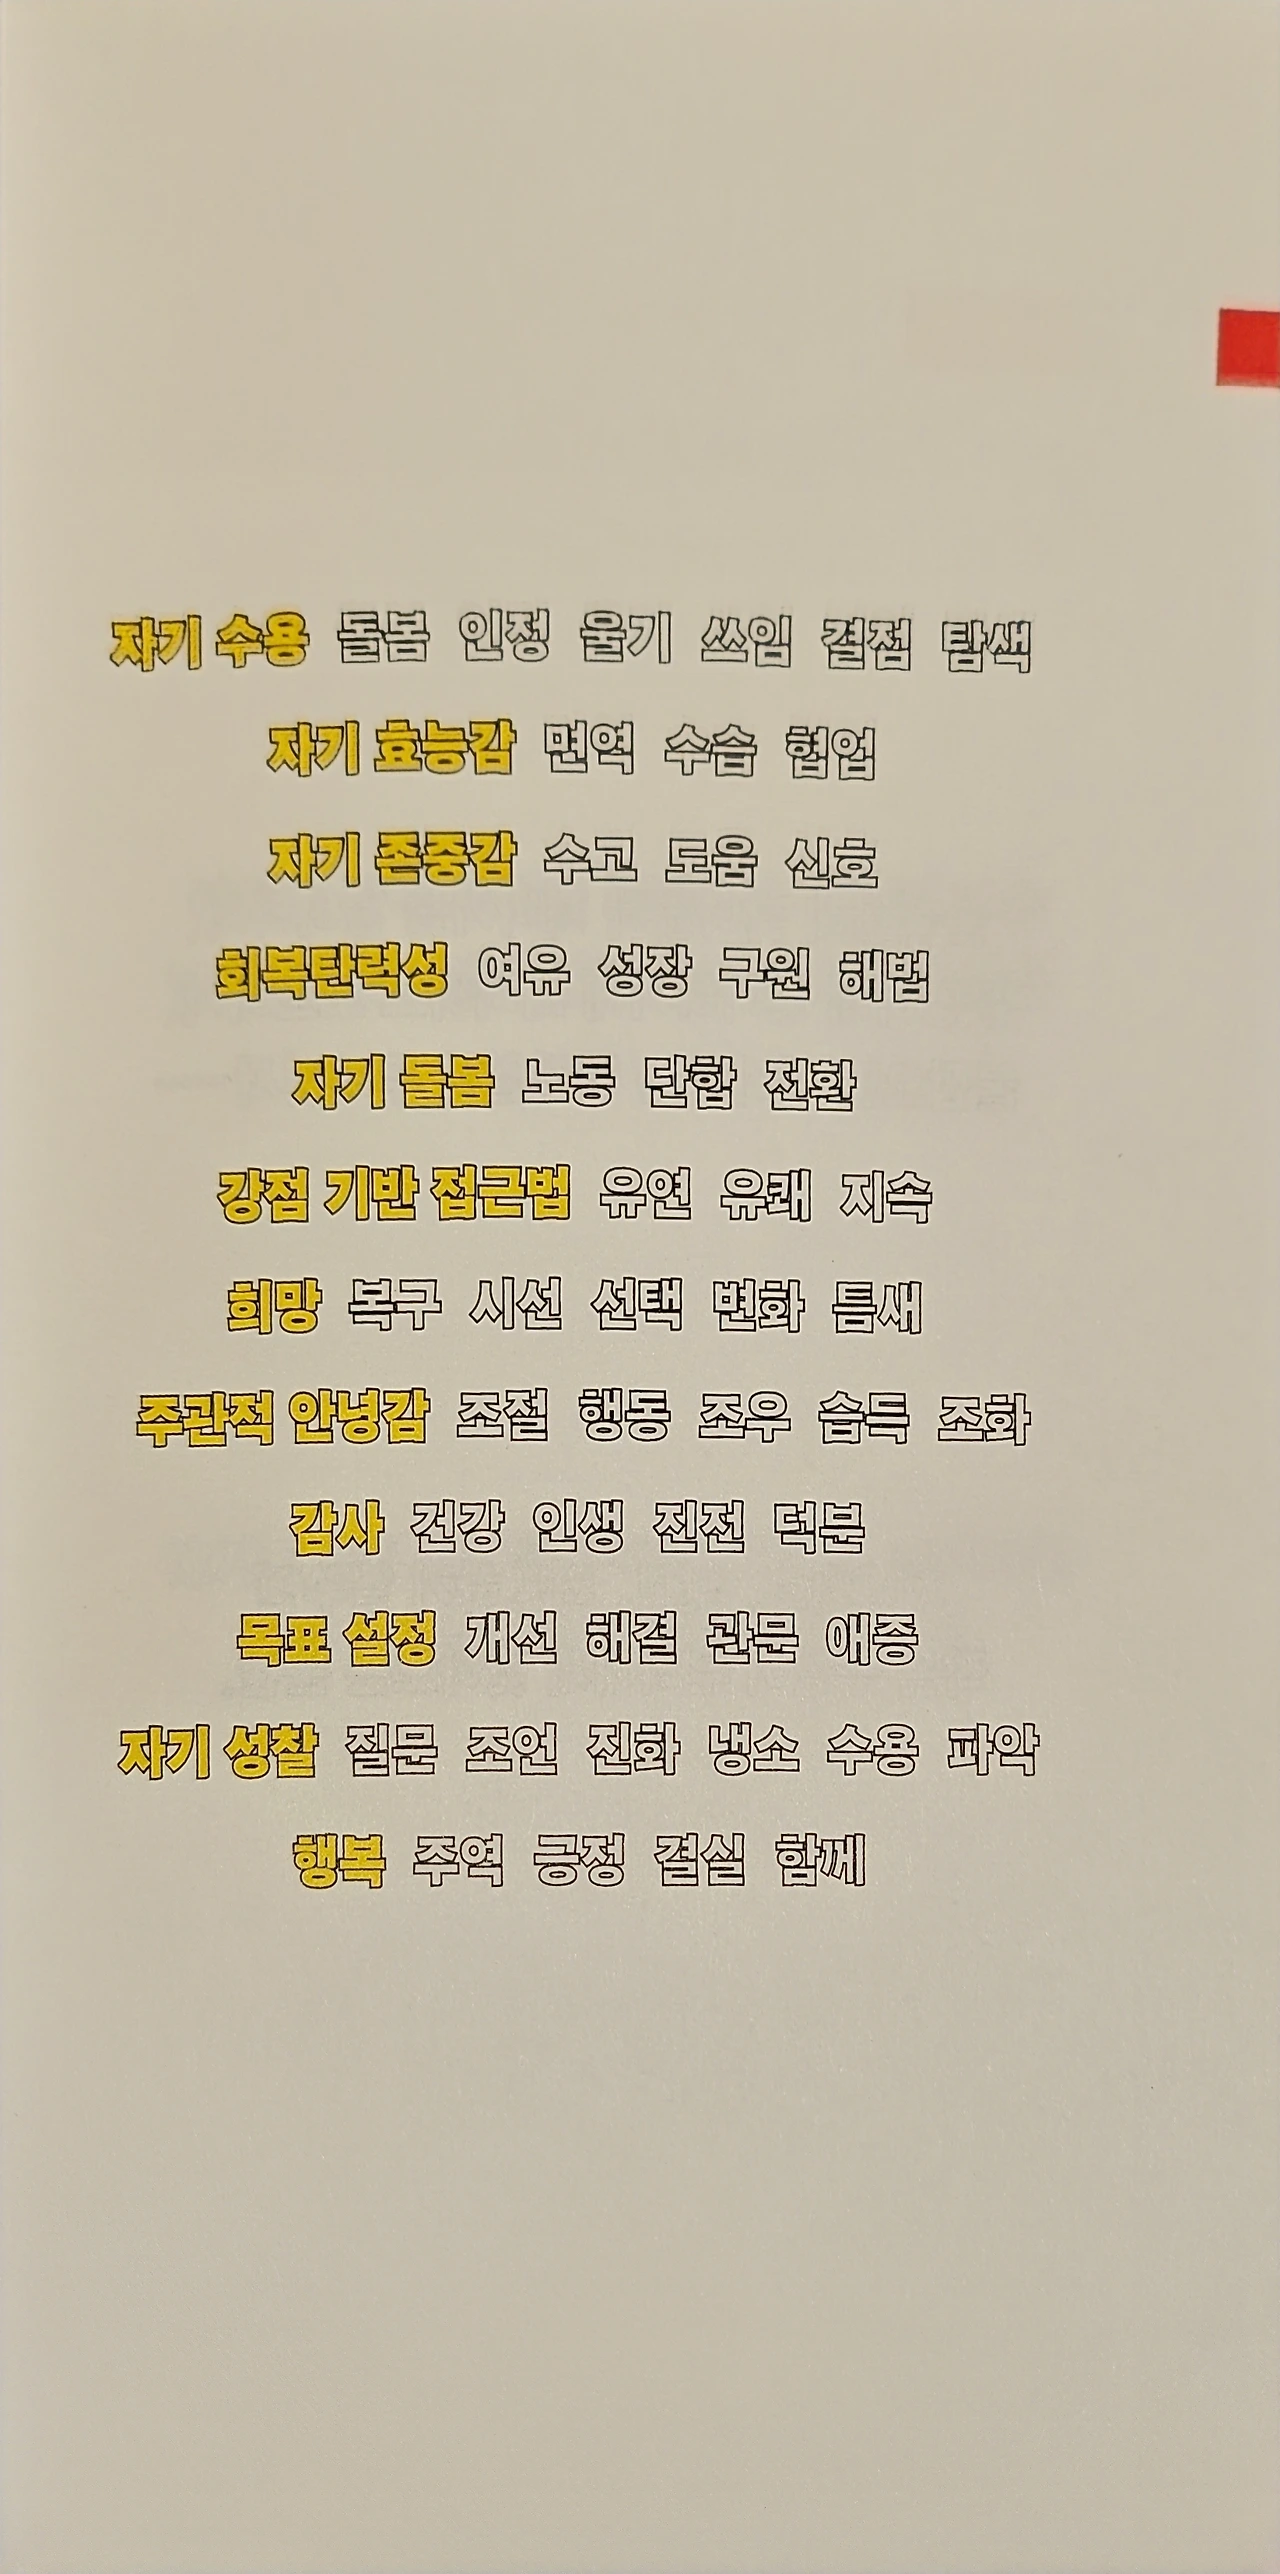 자기 수용 돌봄 인정 울기 쓰임 결점 탐색
자기 효능감 면역 수습 협업
자기 존중감 수고 도움 신호
회복탄력성 여유 성장 구원 해법
자기 돌봄 노동 단합 전환
강점 기반 접근법 유연 유쾌 지속
희망 복구 시선 선택 변화 틈새
주관적 안녕감 조절 행동 조우 습득 조화
감사 건강 인생 진전 덕분
목표 설정 개선 해결 관문 애증
자기 성찰 질문 조언 진화 냉소 수용 파악
행복 주역 긍정 결실 함께